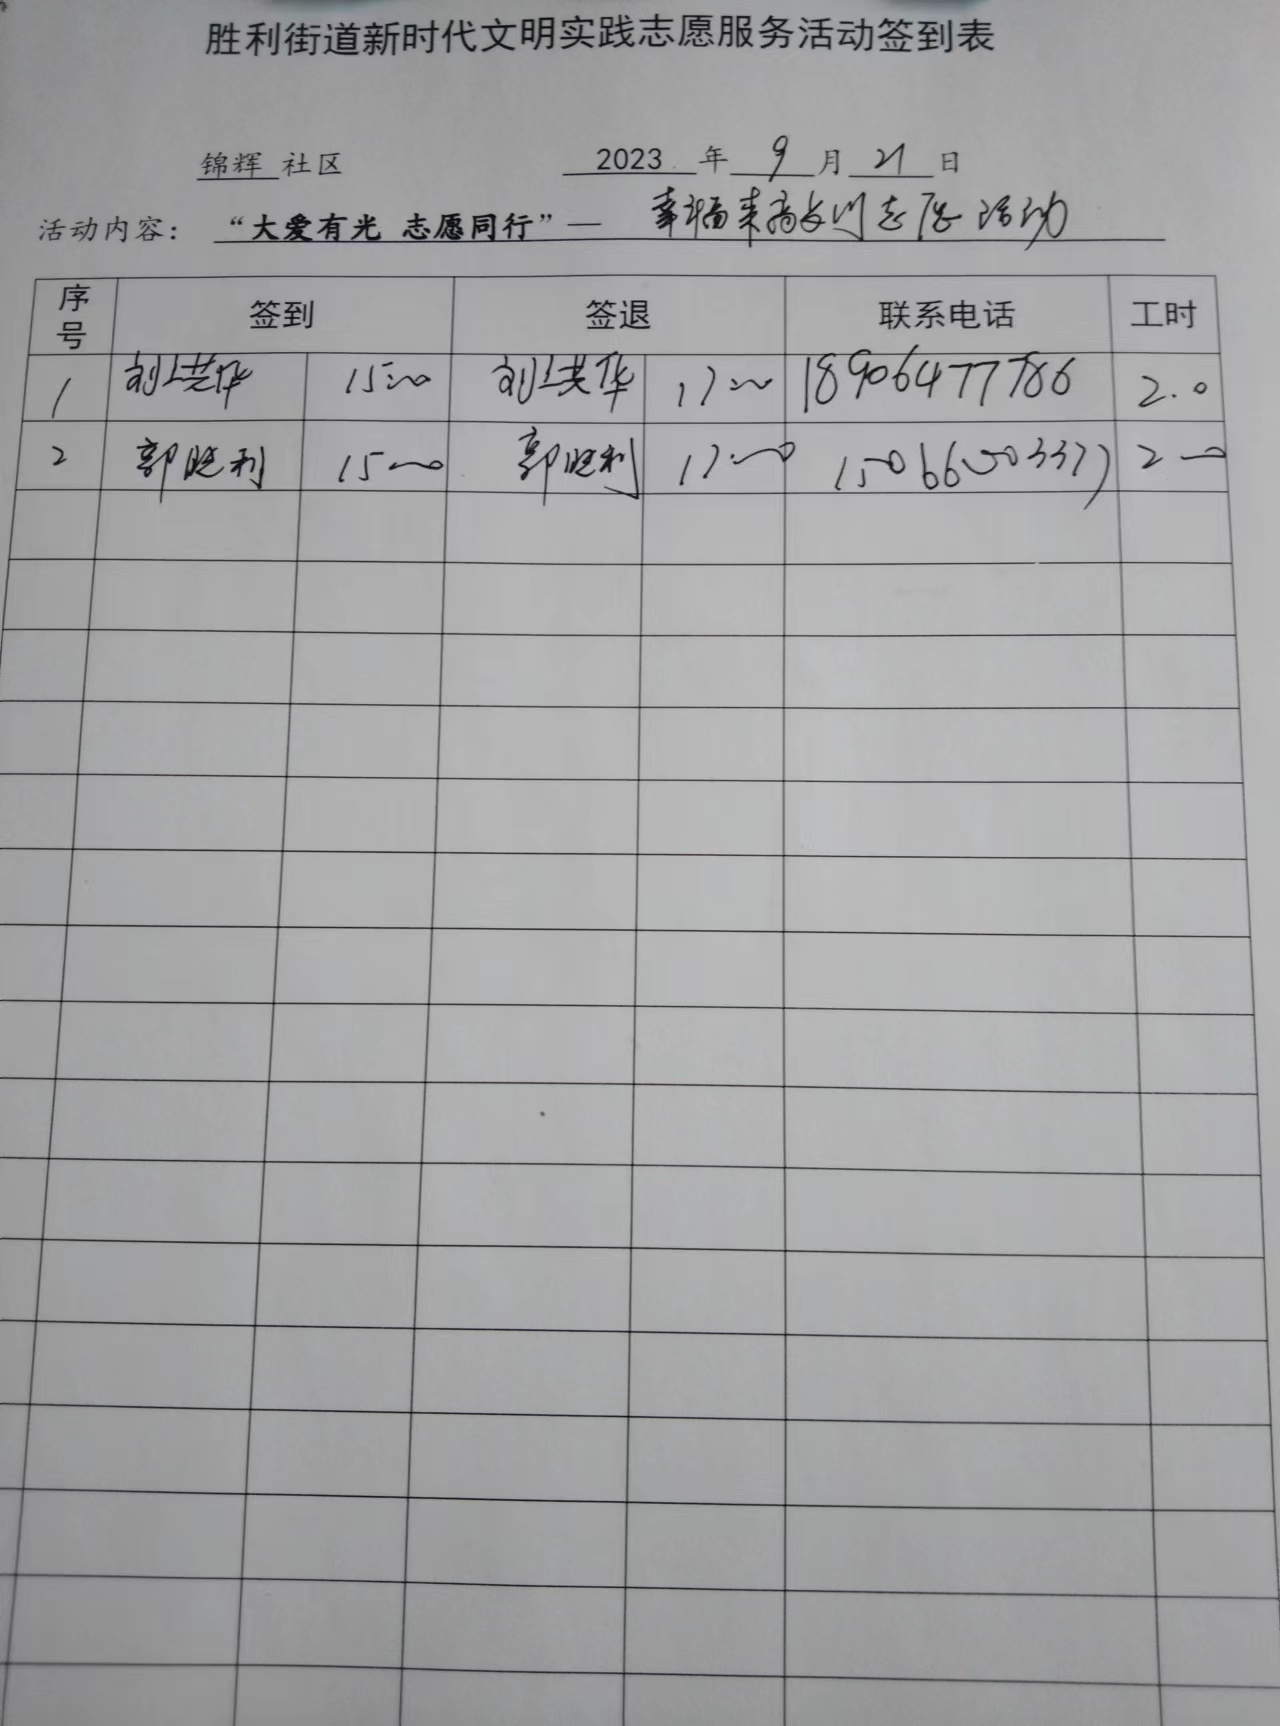 胜利街道新时代文明实践志愿服务活动签到表
锦辉 社区 2023 年 9 月 21 日
活动内容： “大爱有光 志愿同行”— 幸福来 志愿活动
序号 签到 签退 联系电话 工时
1 刘洪华 15:00 刘洪华 17:00 18906477786 2.0
2 郭胜利 15:00 郭胜利 17:00 2.0